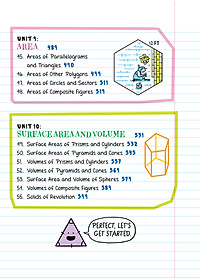 UNIT 9:
AREA 489
45. Areas of Parallelograms
and Triangles 490
46. Areas of Other Polygons 499
47. Areas of Circles and Sectors 511
48. Areas of Composite Figures 519
12 FT
UNIT 10:
SURFACE AREA AND VOLUME 531
49. Surface Areas of Prisms and Cylinders 532
50. Surface Areas of Pyramids and Cones 545
51. Volumes of Prisms and Cylinders 557
52. Volumes of Pyramids and Cones 569
53. Surface Area and Volume of Spheres 579
54. Volumes of Composite Figures 589
55. Solids of Revolution 599
PERFECT, LET'S
GET STARTED.